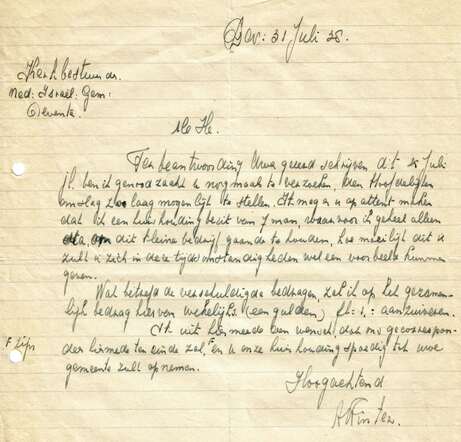 Dev: 31 Juli 28.
Kerkbestuur der
Ned: Israel: Gem:
Deventer
M. H.
Ter beantwoording Uwe geeerd schrijven dit 25 Juli
jl. ben ik genoodzaakt U nogmaals te verzoeken, den Hoofdelijke
omslag zoo laag mogelijk te stellen. Ik mag er U op attent maken
dat ik een huishouding bezit van 7 man, waarvoor ik geheel alleen
sta, om dit kleine bedrijf gaande te houden, hoe moeilijk dit is
zult U zich in deze tijdsomstandigheden wel een voorbeeld kunnen
geven.
Wat betreft de verschuldigde bedragen, zal ik op het gezamen-
lijk bedrag hiervan wekelijks (een gulden) fl: 1,: aanzuiveren.
Ik uit hiermede een wensch, dat mij gecorrespon-
F tips
deer hiermede ten einde zal, F en U onze huishouding spoedig tot Uwe
gemeente zult opnemen.
Hoogachtend